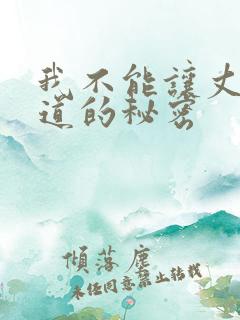 我不能讓丈
道的秘密
傾落塵
未经同意禁止转载